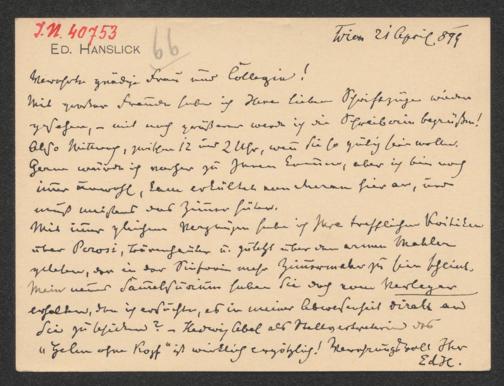 I.N. 40753
ED. HANSLICK
66
Wien 21 April 899
Verehrte gnädige Frau und Collegin!
Mit großer Freude habe ich Ihre lieben Schriftzüge wieder
gesehen, – mit noch größerer werde ich die Schreiberin begrüßen!
Also Mittwoch, zwischen 12 und 2 Uhr, wenn Sie so gütig sein wollen.
Gerne würde ich vorher zu Ihnen kommen, aber ich bin noch
immer unwohl, kam erkältet von Meran hier an, und
muß meistens das Zimmer hüten.
Mit immer gleichem Vergnügen habe ich Ihre trefflichen Kritiken
über Perosi, Bärenhäuter u. zuletzt über den armen Mahler
gelesen, der in der Sinfonie mehr
Mein neues Sammelsurium haben Sie doch vom Verleger
erhalten, den ich ersuchte, es in meiner Abwesenheit direkt an
Sie zu schicken? – Hedwig Abel als Stellvertreterin des
"Helm ohne Kopf" ist wirklich ergötzlich! Verehrungsvoll Ihr
EdH.